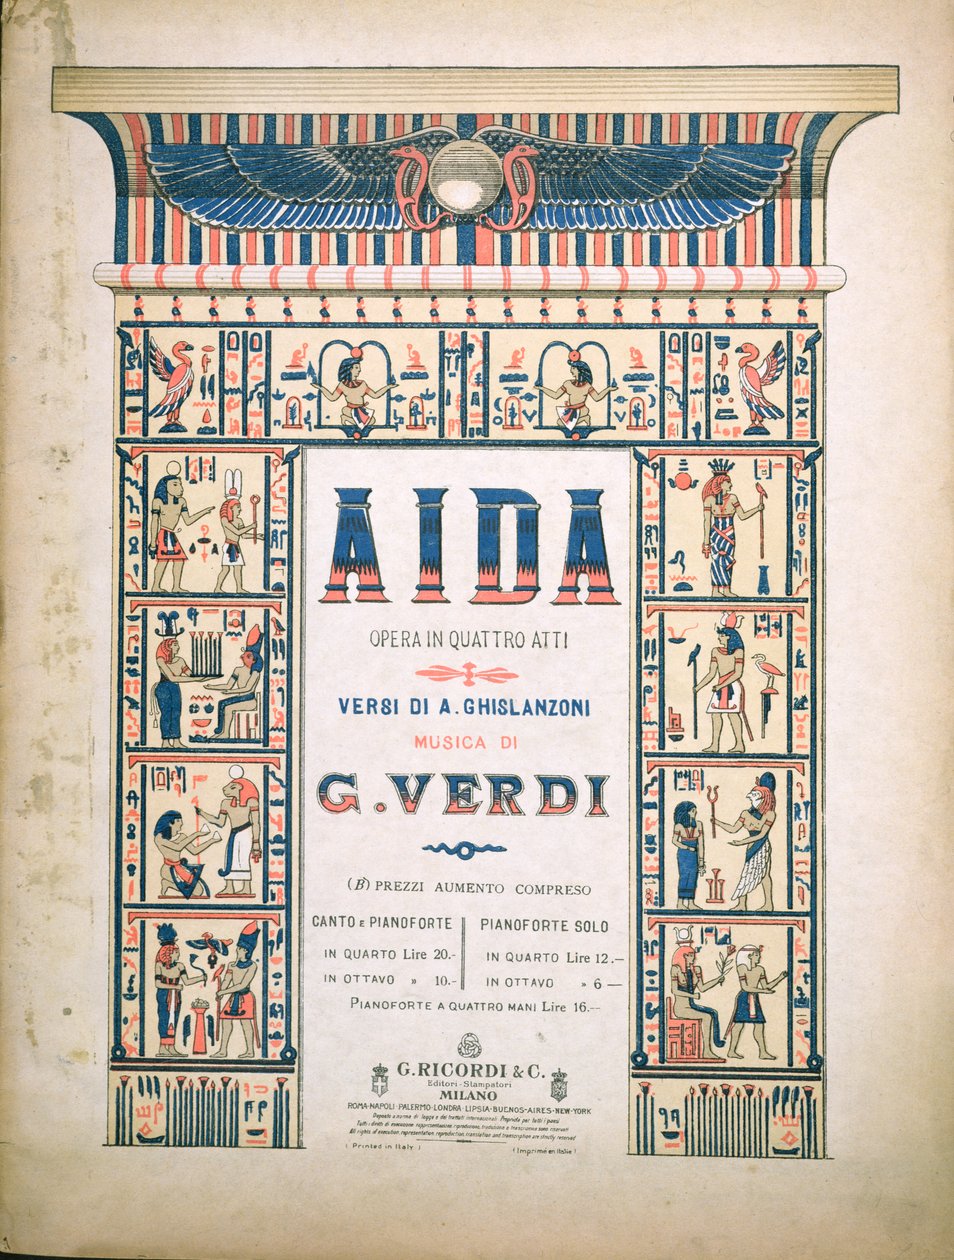 AIDA
OPERA IN QUATTRO ATTI
VERSI DI A. GHISLANZONI
MUSICA DI
G. VERDI
(B) PREZZI AUMENTO COMPRESO
CANTO E PIANOFORTE
IN QUARTO Lire 20.-
IN OTTAVO » 10.-
PIANOFORTE SOLO
IN QUARTO Lire 12.—
IN OTTAVO » 6 —
PIANOFORTE A QUATTRO MANI Lire 16.—
G. RICORDI & C.
Editori-Stampatori
MILANO
ROMA-NAPOLI-PALERMO-LONDRA-LIPSIA-BUENOS-AIRES-NEW-YORK
Deposto a norma di legge e dei trattati internazionali. Proprietà per tutti i paesi
Tutti i diritti di esecuzione, rappresentazione, riproduzione, traduzione e trascrizione sono riservati
All rights of execution, representation, reproduction, translation and transcription are strictly reserved
(Printed in Italy)
(Imprimé en Italie)